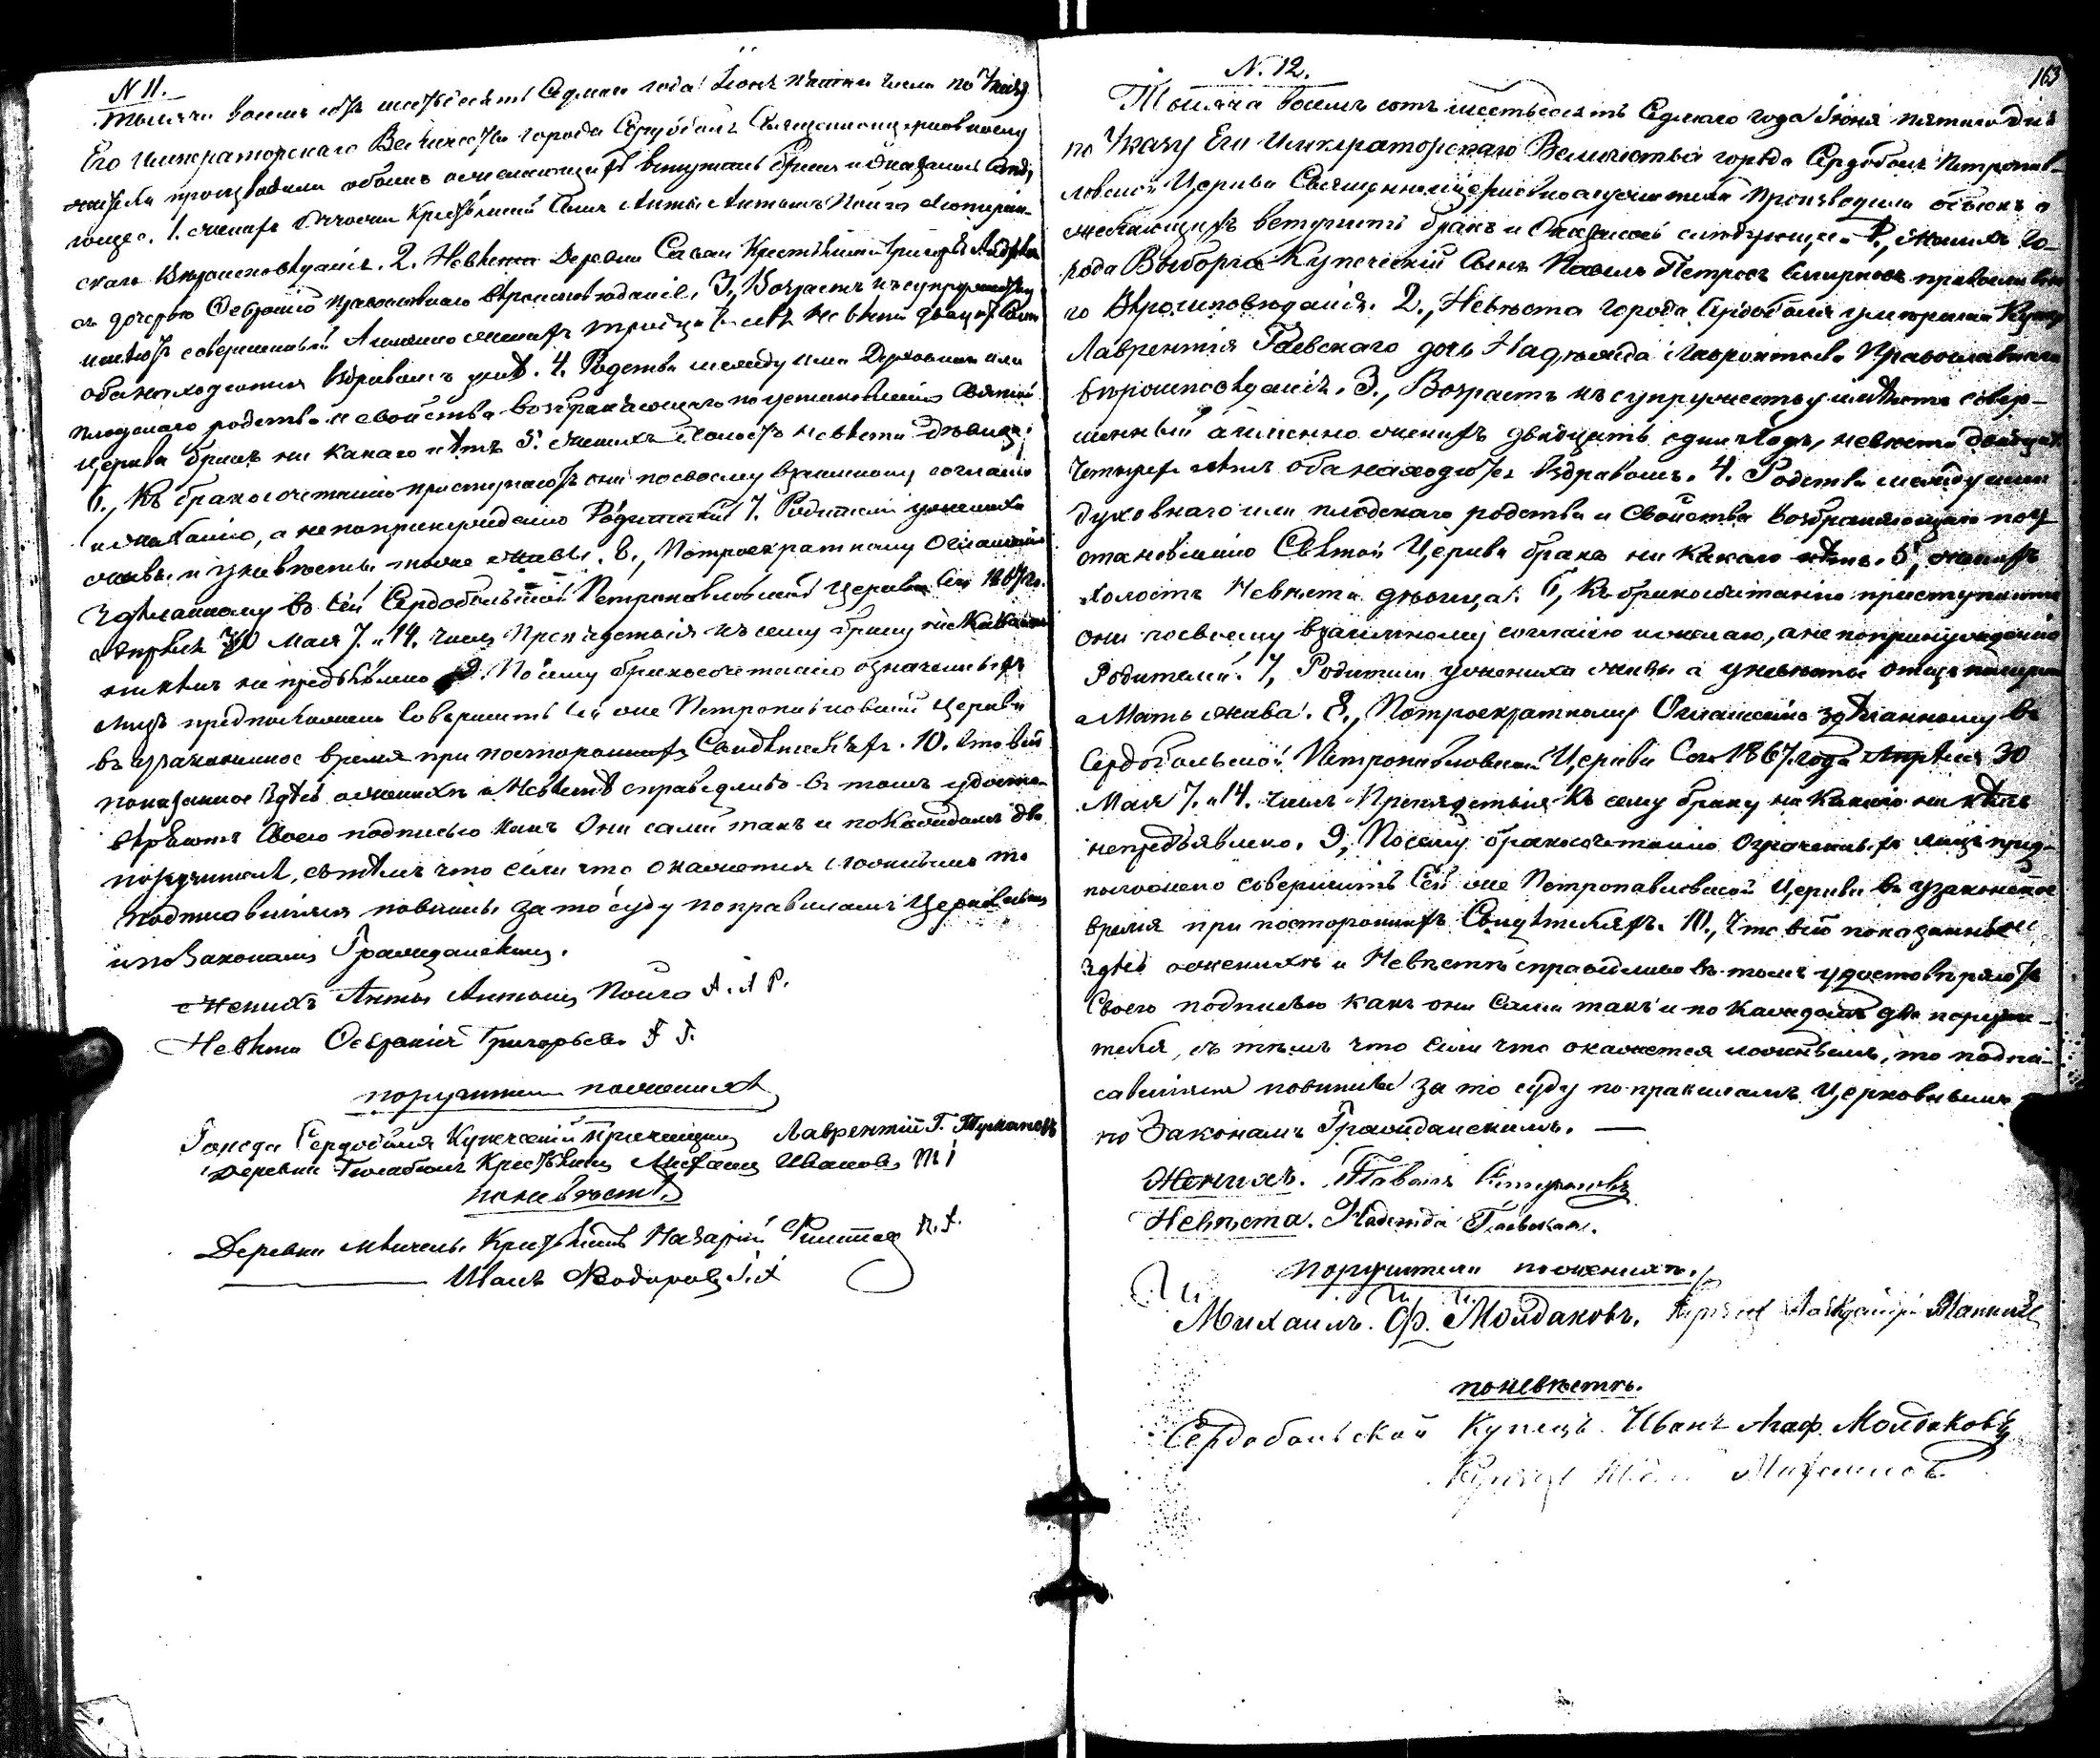 N 11.
Тысяча восемь сотъ шестьдесятъ седмаго года Іюня пятаго числа по Указу
Его Императорскаго Величества города Сердоболь Священноцерковному
служители производили обыскъ о желающихъ вступить бракъ и оказалось слѣду
ющее. 1. женихъ крестьянскій сынъ Антъ Антоновъ Пойга лютеран-
скаго вѣроисповѣданія. 2. Невѣста деревни крестьянина Григорія
дочерью Февронію православнаго вѣроисповѣданіе. 3., Возрастъ къ супружеству
имѣютъ совершенный а именно женихъ тридцать лѣтъ невѣста двадцать
оба находятся въ здравомъ умѣ. 4. Родства между ими Духовнаго или
плодскаго родства и свойства возбраняющаго по установленію святой
церкви бракъ ни какаго нѣтъ 5. женихъ холостъ невѣста дѣвица.
6., Къ бракосочетанію приступаютъ они по своему взаимному согласію
и желанію, а не по принужденію Родителей 7. Родители у жениха
живы и у невѣсты тоже живы. 8., По троекратному Оглашенію
здѣланному въ сей Сердобольской Петропавловской Церкви сего 1867 го.
Апрѣля 30 Мая 7. и 14. числъ Препядствія къ сему браку ни какаго
ни кѣмъ не предъявлено 9. По сему бракосочетанію означенныхъ
лицъ предположено совершить въ сей же Петропавловской церкви
въ узаконенное время при постороннихъ Свидѣтеляхъ. 10. Что всё
показанное здѣсь о женихѣ и Невѣстѣ справедливо въ томъ удосто-
вѣряютъ своею подписью какъ Они сами такъ и по каждомъ два
поручителя, съ тѣмъ что если что окажется ложнымъ то
подписавшіяся повинны за то суду по правиламъ церковнымъ
и по Законамъ Гражданскимъ.
Женихъ Антъ Антонъ Пойга А. А. Р.
Невѣста Февронія Григорьева F. Г.
поручители по женихѣ
Города Сердоболя Купеческій прикащикъ Лаврентій Г. Тумановъ
Деревни крестьянинъ Ивановъ М I
по невѣстѣ
Деревни крестьянинъ Назарій Филиппов Н. F.
Иванъ Ѳеодоровъ I. F.
N. 12.
163
Тысяча восемь сотъ шестьдесятъ седмаго года Іюня пятаго дня
по Указу Его Императорскаго Величества города Сердоболь Петропав-
ловской Церкви Священноцерковнослужители производили обыскъ о
желающихъ вступить бракъ и Оказалось слѣдующее. 1, женихъ Го-
рода Выборга Купеческій сынъ Павелъ Петровъ Ситроновъ православна
го Вѣроисповѣданія. 2., Невѣста Города Сердоболя умершаго Купца
Лаврентія Гаевскаго дочь Надѣжда Лаврентьева Православнаго
вѣроисповѣданія. 3., Возрастъ къ супружеству имѣютъ совер-
шенный а именно женихъ двадцать одинъ годъ, невѣста двадцать
четыре лѣтъ оба находятся въ здравомъ. 4. Родства между ими
Духовнаго или плодскаго родства и свойства возбраняющаго по у
становленію Святой Церкви бракъ ни какаго нѣтъ. 5, женихъ
холостъ Невѣста дѣвица. 6, Къ бракосочетанію приступаютъ
они по своему взаимному согласію и желаю, а не по принужденію
Родителей. 7, Родители у жениха живы а у невѣсты отецъ померъ
а Мать жива. 8., По троекратному Оглашенію здѣланному въ
Сердобольской Петропавловской Церкви Сего 1867. года Апрѣля 30
Мая 7. и 14. числъ Препядствія къ сему браку ни какаго ни кѣмъ
непредъявлено. 9, По сему бракосочетанію Означенныхъ лицъ пред-
положено совершить въ Сей же Петропавловской Церкви въ узаконенное
время при постороннихъ Свидѣтеляхъ. 10., Что всё показанное
здѣсь о женихѣ и Невѣстѣ справедливо въ томъ удостовѣряютъ
Своею подписью какъ они Сами такъ и по каждомъ два поручи-
теля, съ тѣмъ что если что окажется ложнымъ, то подпи-
савшіяся повинны за то суду по правиламъ Церковнымъ и
по Законамъ Гражданскимъ. —
Женихъ. Павелъ Ситроновъ
Невѣста. Надежда Гаевская.
Поручители по женихѣ.
Михаилъ. Ф. Молдаковъ.
по невѣстѣ.
Сердобольской Купецъ Иванъ Агаф. Молдаковъ
Купецъ Михаиловъ